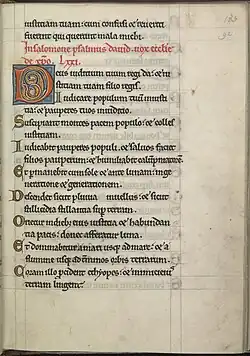 iustitiam tuam: cum confusi & reueriti
fuerint qui querunt mala michi.
In salomone psalmus dauid. uox ecclesie
de xpo. LXXI.
Deus iudicium tuum regi da: & iu
stitiam tuam filio regis.
Iudicare populum tuum in iusti
tia: & pauperes tuos in iudicio.
Suscipiant montes pacem populo: & colles
iustitiam.
Iudicabit pauperes populi, & saluos faciet
filios pauperum: & humiliabit calumpniatorem.
Et permanebit cum sole & ante lunam: in ge
neratione & generationem.
Descendet sicut pluuia in uellus: & sicut
stillicidia stillantia super terram.
Orietur in diebus eius iusticia & habundan
tia pacis: donec afferatur luna.
Et dominabitur a mari usq; ad mare: & a
flumine usq; ad terminos orbis terrarum.
Coram illo procident ethyopes: & inimici eius
terram lingent.